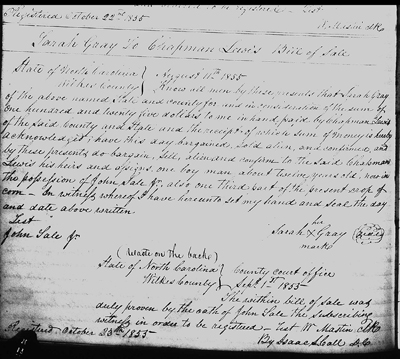 Registered October 22nd 1855 W Mastin Clk
Sarah Gray To Chapman Lewis Bill of Sale
State of North Carolina } August 11th 1855
Wilkes County } Know all men by these presents that Sarah Gray
of the above named State and county for and in consideration of the sum of
One hundred and twenty five dollars to me in hand paid by Chapman Lewis
of the said County and State and the receipt of which sum of money is hereby
acknowledged; have this day bargained, sold alien, and confirmed, and
by these presents do bargain, sell, alien and confirm to the said Chapman
Lewis his heirs and assigns, one boy man about twelve years old, now in
the possession of John Sale Jr, also one third part of the present crop of
corn – In witness whereof I have hereunto set my hand and seal the day
and date above written
Test her
John Sale Jr Sarah X Gray
mark
(Wrote on the back)
State of North Carolina } County court office
Wilkes County } Sept 1st 1855
The within bill of sale was
duly proven by the oath of John Sale the subscribing
witness in order to be registered – Test W Mastin Clk
Registered October 23rd 1855 By Isaac Call D.C.